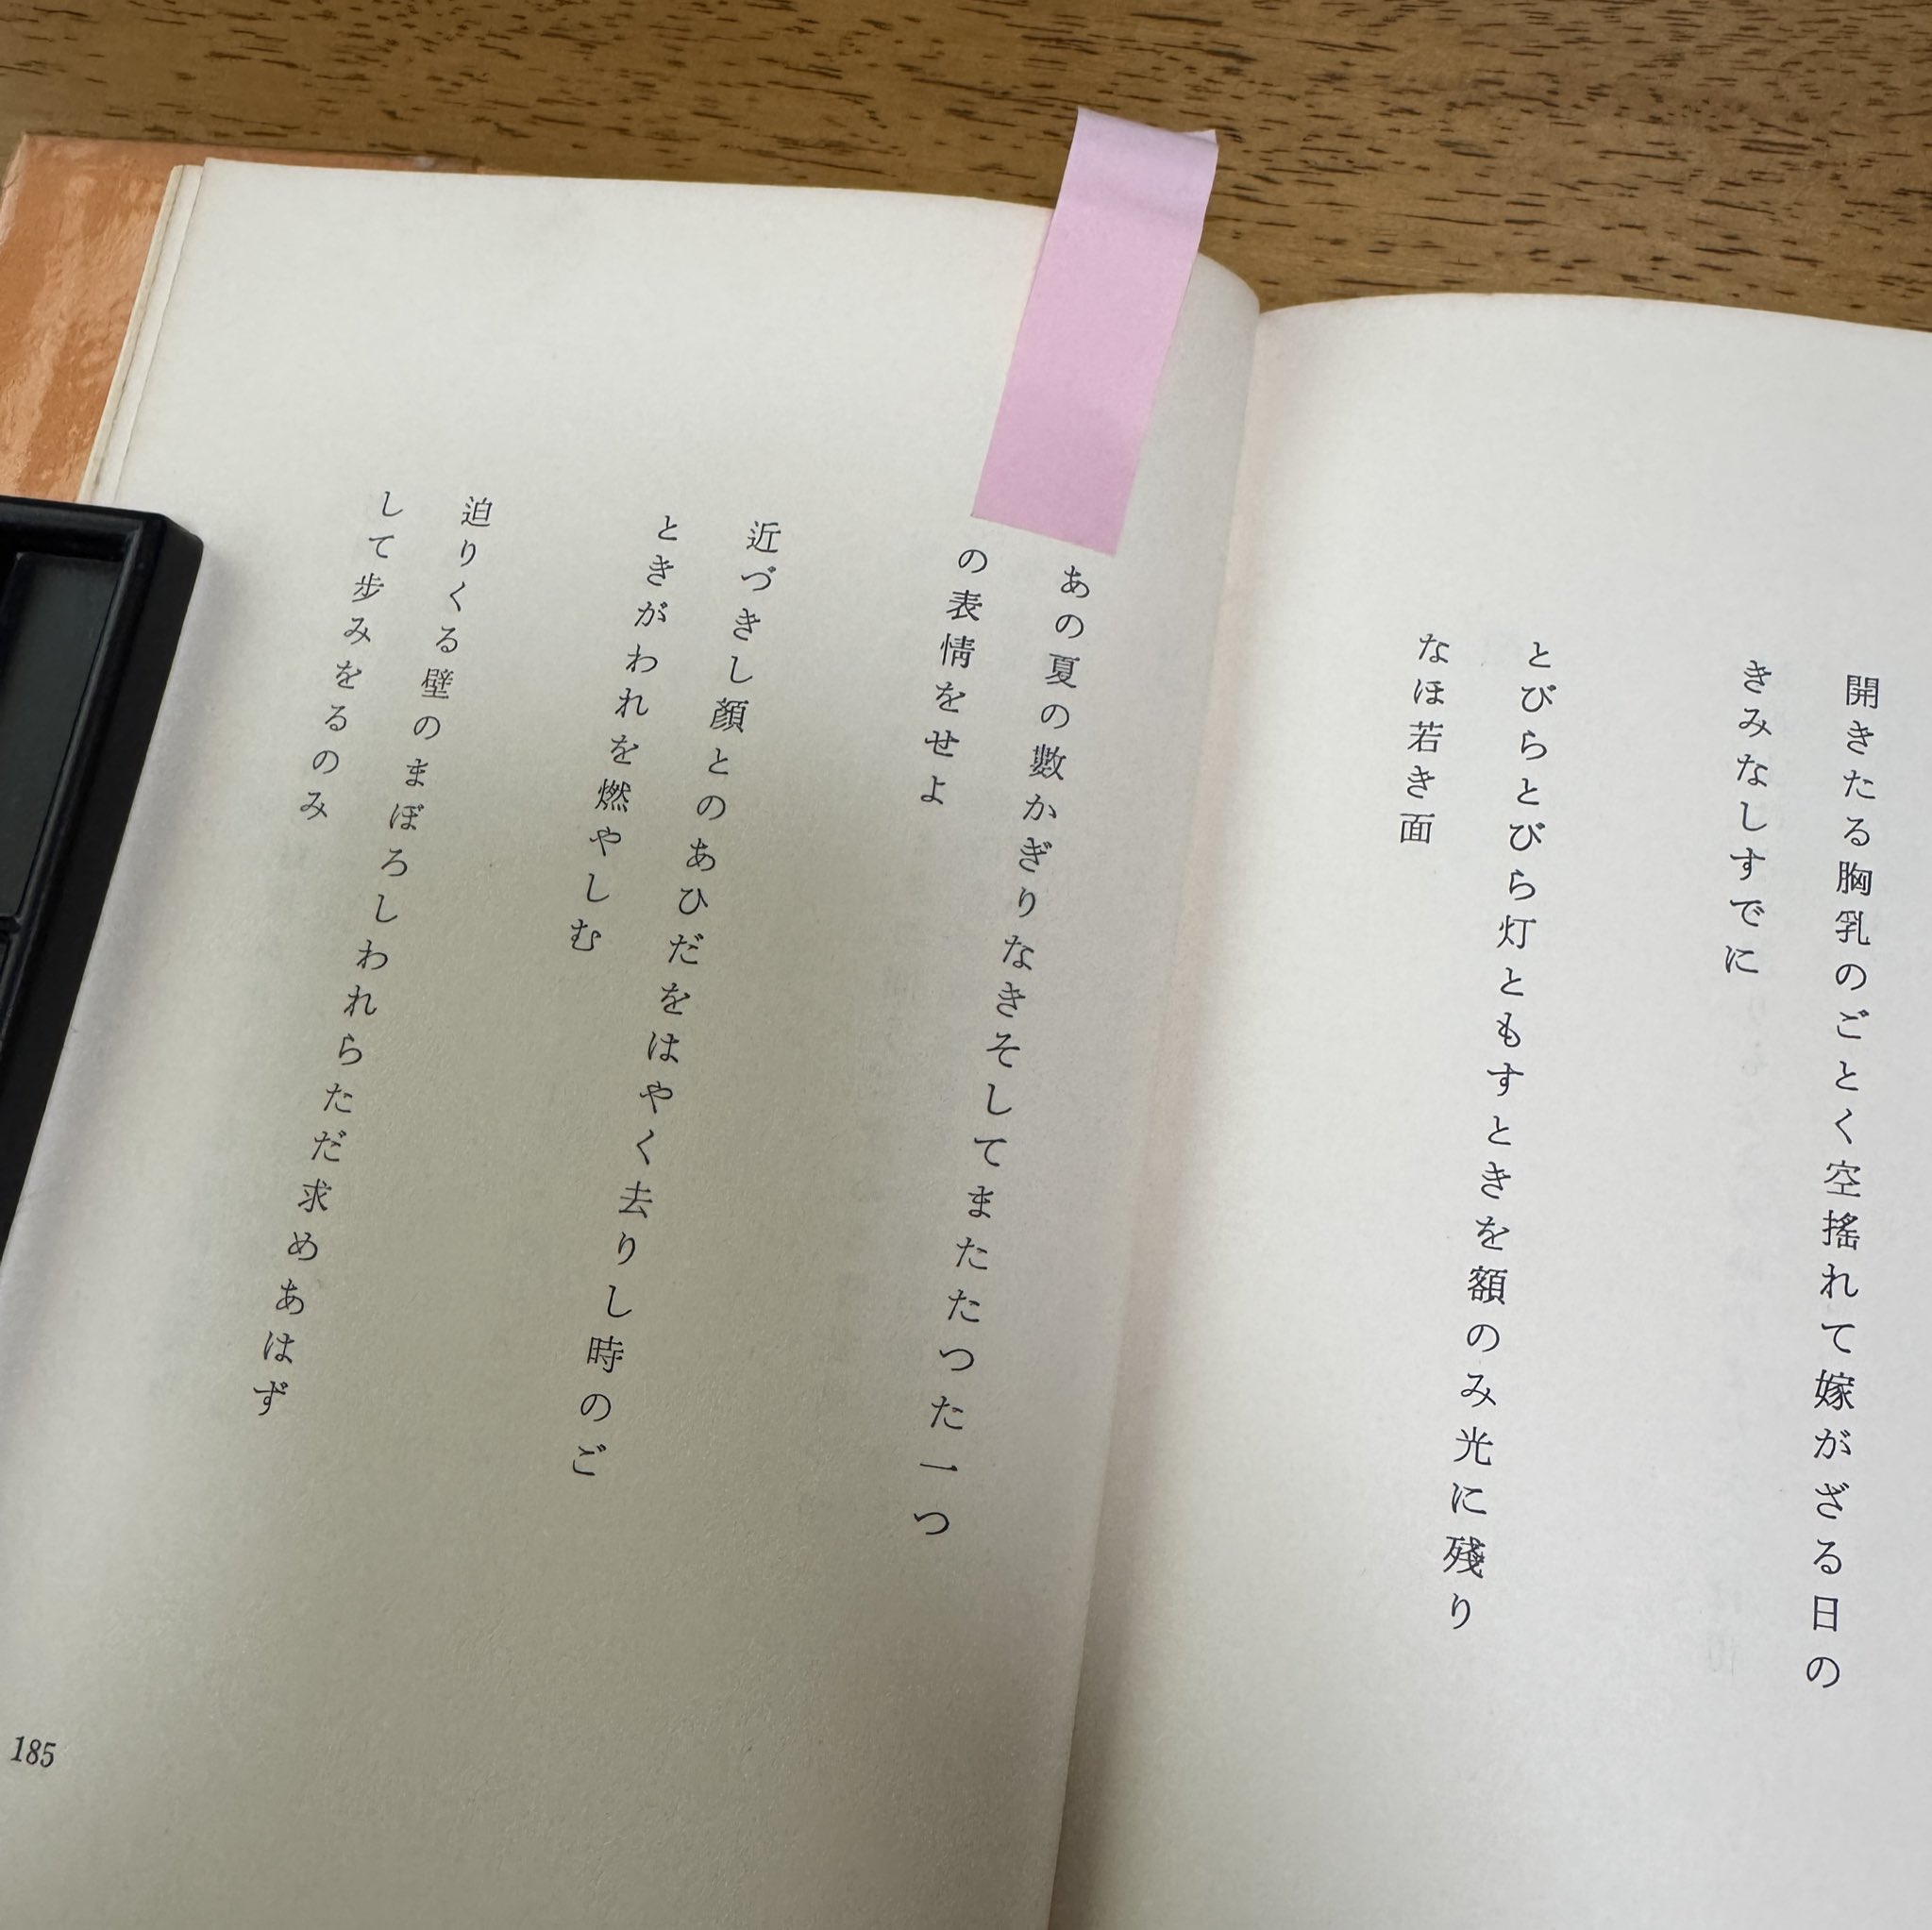 開きたる胸乳のごとく空搖れて嫁がざる日の
きみなしすでに
とびらとびら灯ともすときを額のみ光に殘り
なほ若き面
あの夏の數かぎりなきそしてまたたつた一つ
の表情をせよ
近づきし顔とのあひだをはやく去りし時のご
ときがわれを燃やしむ
迫りくる壁のまぼろしわれらただ求めあはず
して歩みをるのみ
185